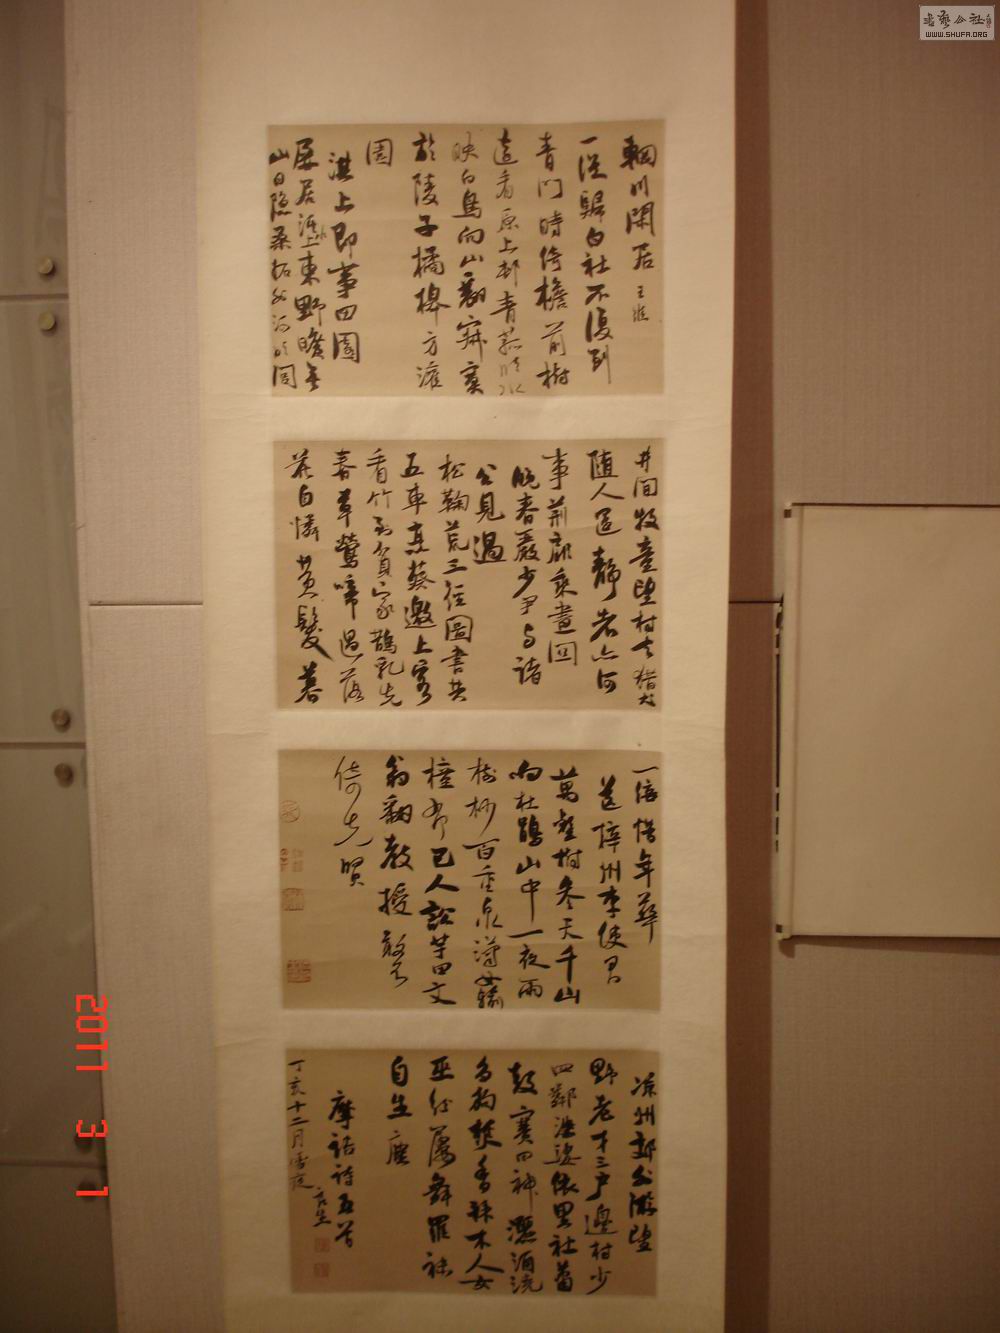 輞川閑居 王維
一從歸白社不復到
青門時倚檐前樹
遠看原上村青菰臨水
映白鳥向山翻寂寞
於陵子橘槔方灌
園
淇上即事田園
屏居淇水上東野曠無
山日隱桑柘外河明閭
井間牧童望村去獵犬
隨人還靜者亦何
事荊扉乘晝関
晚春嚴少尹与諸
公見過
松鞠荒三徑圖書共
五車烹葵邀上客
看竹到貧家鵲乳先
春草鶯啼過落
花自憐黃髮暮
一倍惜年華
送梓州李使君
萬壑樹參天千山
響杜鵑山中一夜雨
樹杪百重泉漢女輸
橦布巴人訟芋田文
翁翻教授敢不
倚先賢
涼州郊外游望
野老才三戶邊村少
四鄰婆娑依里社簫
鼓賽田神灑酒澆
芻狗焚香拜木人女
巫紛屢舞羅袜
自生塵
摩詰詩五首
丁亥十二月雪夜
書藝公社
WWW.SHUFA.ORG
2011 3 1